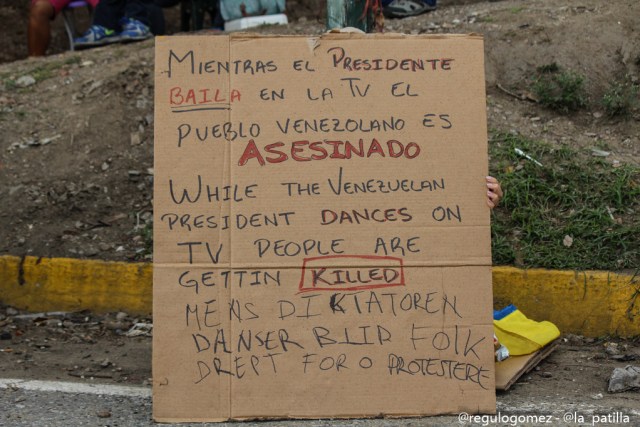 MIENTRAS EL PRESIDENTE
BAILA EN LA TV EL
PUEBLO VENEZOLANO ES
ASESINADO
WHILE THE VENEZUELAN
PRESIDENT DANCES ON
TV PEOPLE ARE
GETTIN KILLED
MENS DIKTATOREN
DANSER BLIR FOLK
DREPT FOR O PROTESTERE
@regulogomez - @la_patilla